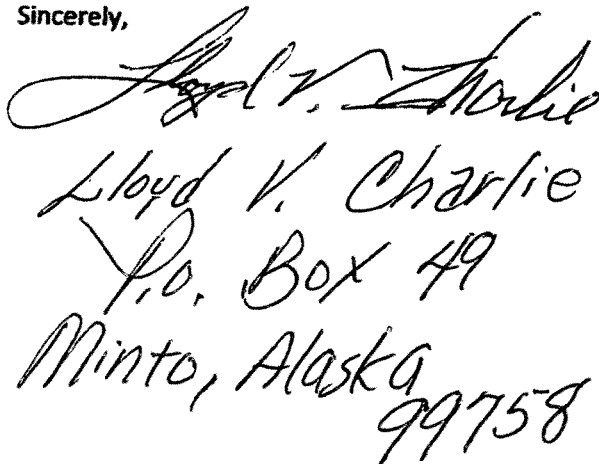 Sincerely,
Lloyd V. Charlie
Lloyd V. Charlie
P.O. Box 49
Minto, Alaska
99758